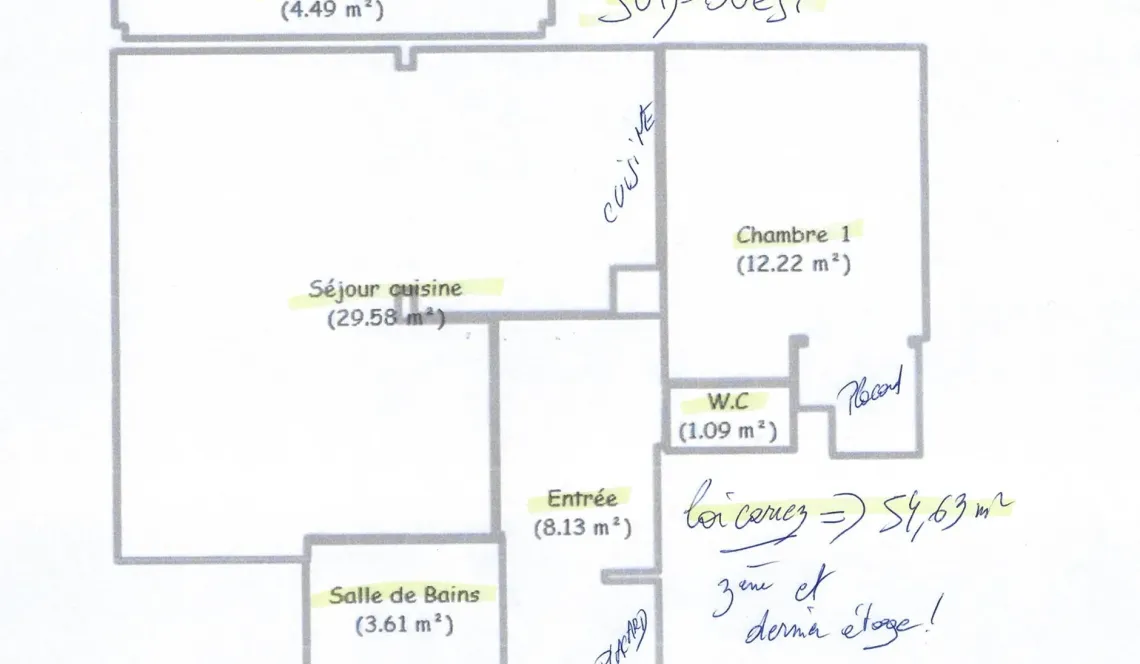 (4.49 m²)
SUD-OUEST
CUISINE
Chambre 1
(12.22 m²)
Séjour cuisine
(29.58 m²)
Placard
W.C
(1.09 m²)
Entrée
(8.13 m²)
loi carrez => 54,63 m²
Salle de Bains
(3.61 m²)
3ème et
dernier étage !
PLACARD